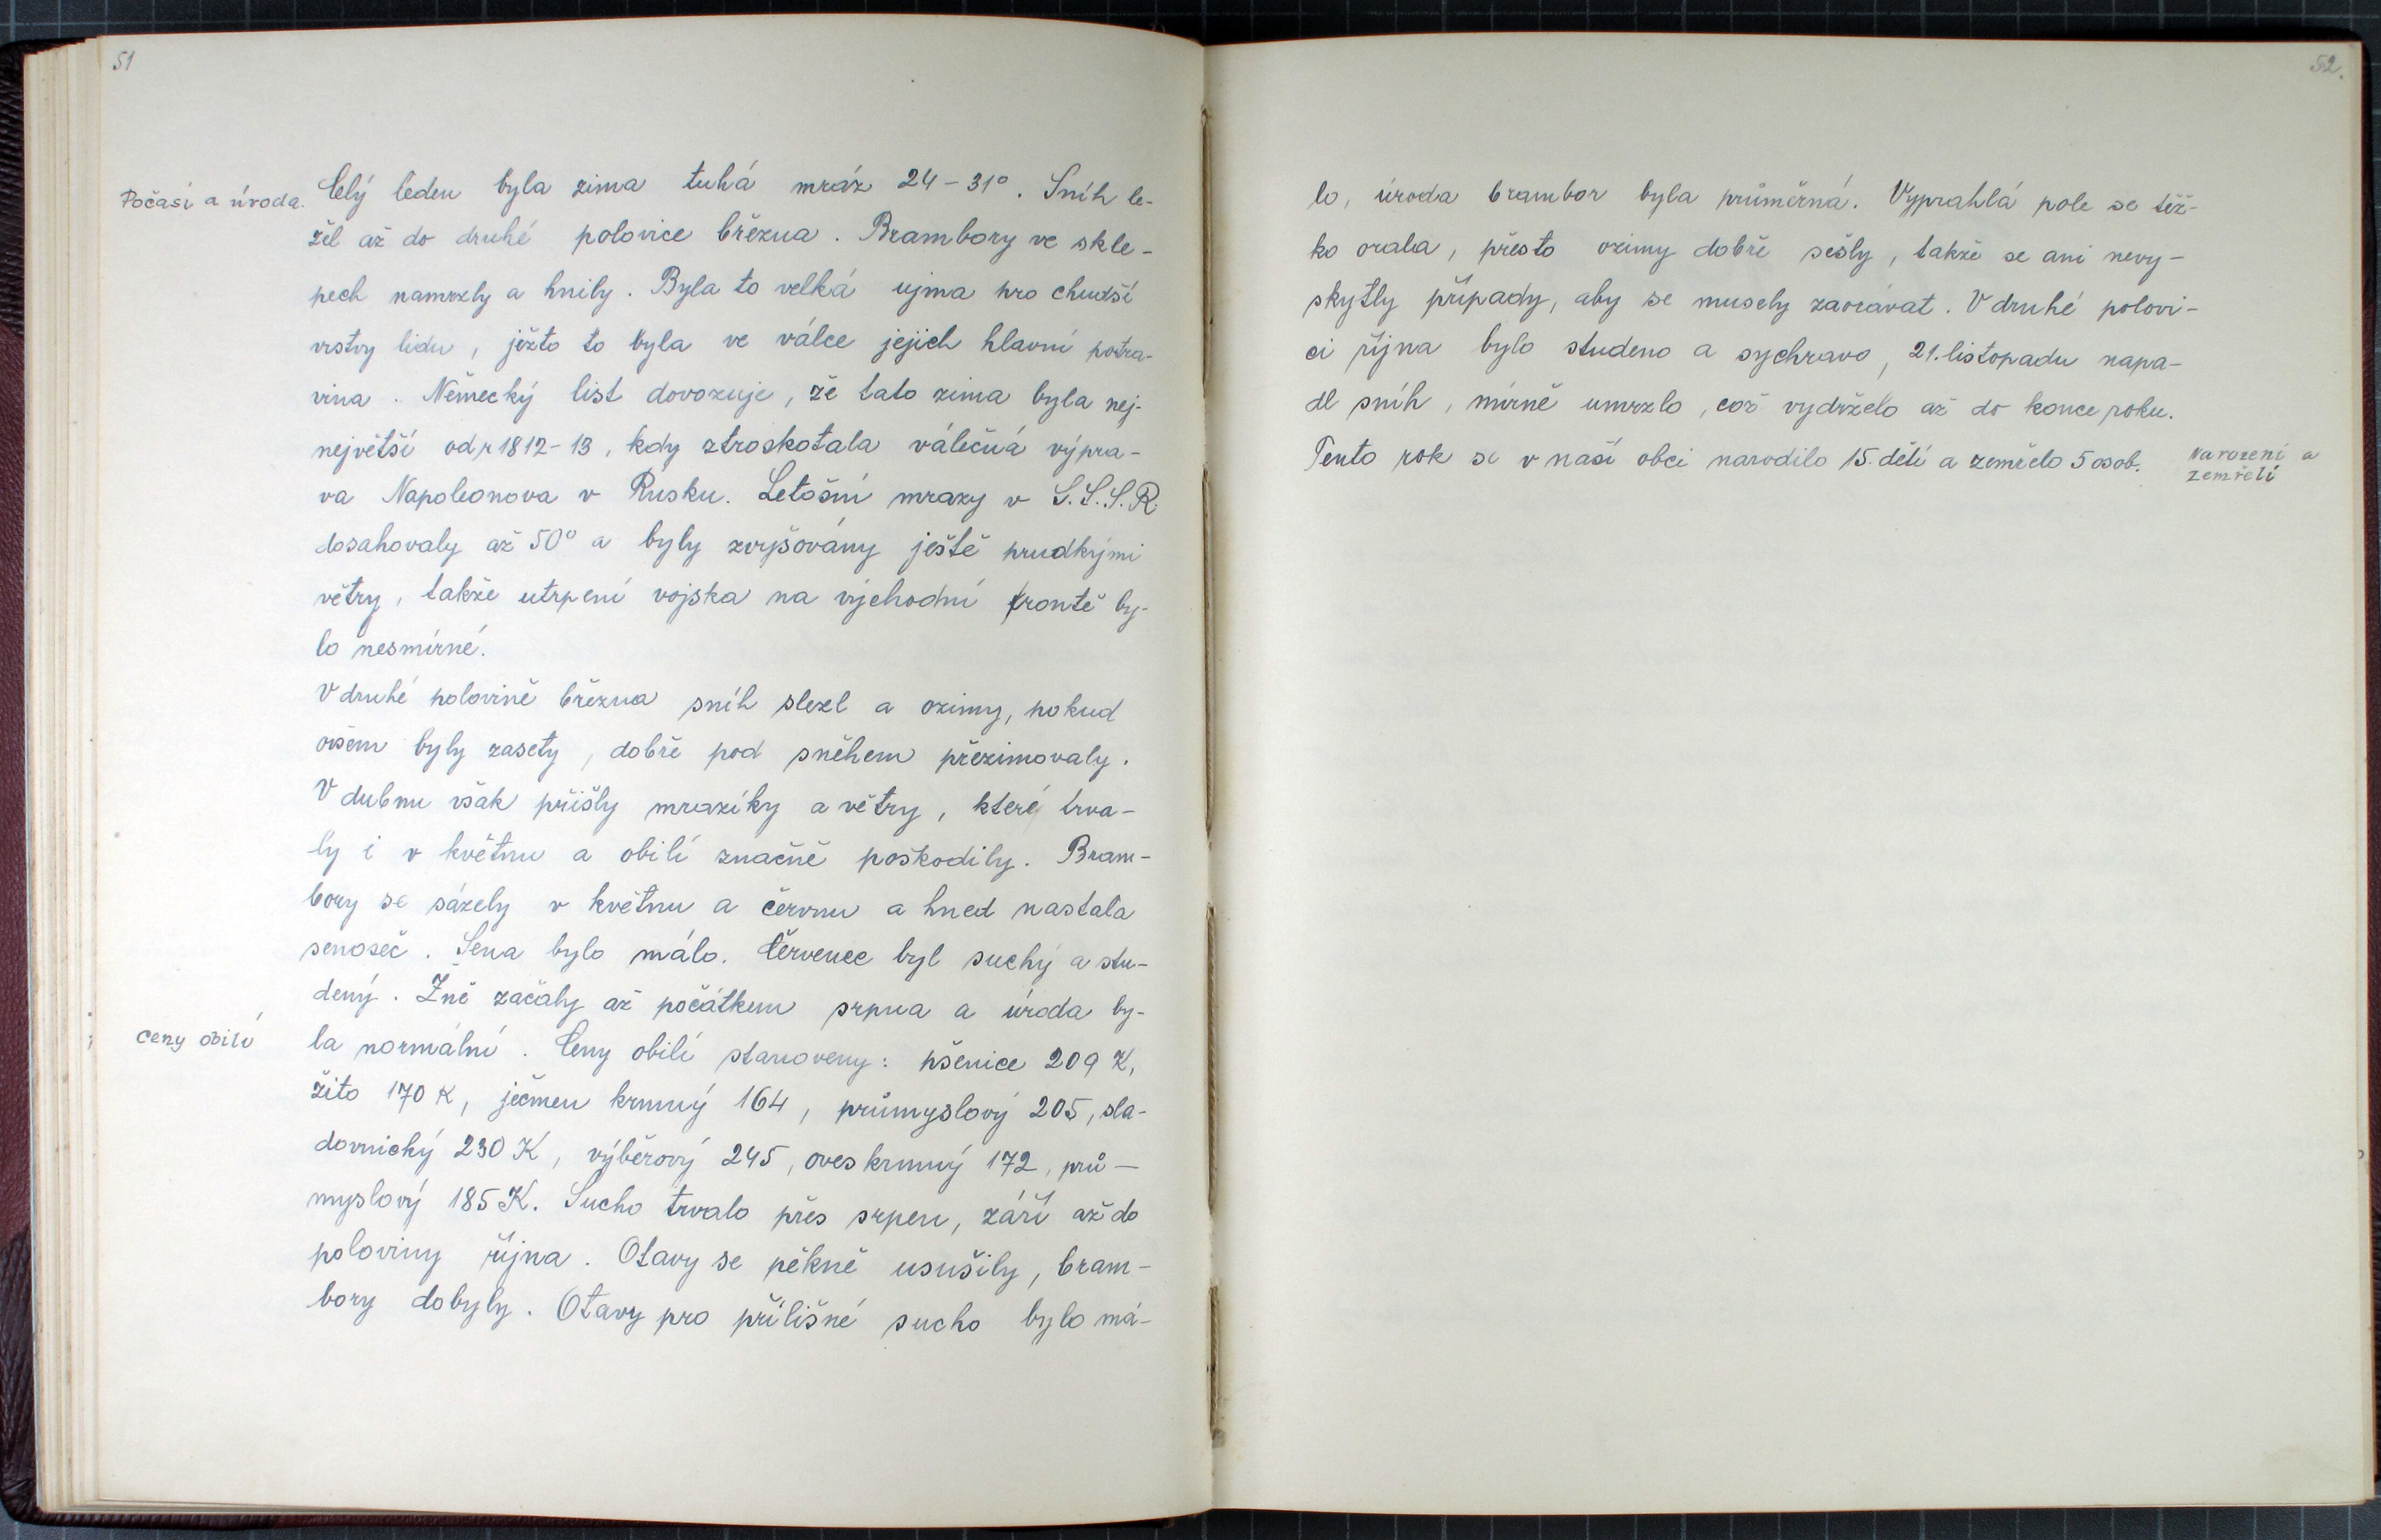 51
Počasí a úroda.
Celý leden byla zima tuhá mráz 24-31°. Sníh le-
žel až do druhé polovice března. Brambory ve skle-
pech namrzly a hnily. Byla to velká ujma pro chudší
vrstvy lidu, ježto to byla ve válce jejich hlavní potra-
vina. Německý list dovozuje, že tato zima byla nej-
největší od r 1812-13, kdy ztroskotala válečná výpra-
va Napoleonova v Rusku. Letošní mrazy v S.S.S.R.
dosahovaly až 50° a byly zvyšovány ještě prudkými
větry, takže utrpení vojska na východní frontě by-
lo nesmírné.
V druhé polovině března sníh slezl a ozimy, pokud
ovšem byly zasety, dobře pod sněhem přezimovaly.
V dubnu však přišly mrazíky a větry, které trva-
ly i v květnu a obilí značně poškodily. Bram-
bory se sázely v květnu a červnu a hned nastala
senoseč. Sena bylo málo. Červenec byl suchý a stu-
dený. Žně začaly až počátkem srpna a úroda by-
Ceny obilí
la normální. Ceny obilí stanoveny: pšenice 209 K,
žito 170 K, ječmen krmný 164, průmyslový 205, sla-
dovnický 230 K, výběrový 245, oves krmný 172, prů-
myslový 185 K. Sucho trvalo přes srpen, září až do
poloviny října. Otavy se pěkně usušily, bram-
bory dobyly. Otavy pro přílišné sucho bylo má-
52.
lo, úroda brambor byla průměrná. Vyprahlá pole se těž-
ko orala, přesto ozimy dobře sešly, takže se ani nevy-
skytly případy, aby se musely zaorávat. V druhé polovi-
ci října bylo studeno a sychravo, 21. listopadu napa-
dl sníh, mírně umrzlo, což vydrželo až do konce roku.
Tento rok se v naší obci narodilo 15. dětí a zemřelo 5 osob.
Narození a
zemřelí